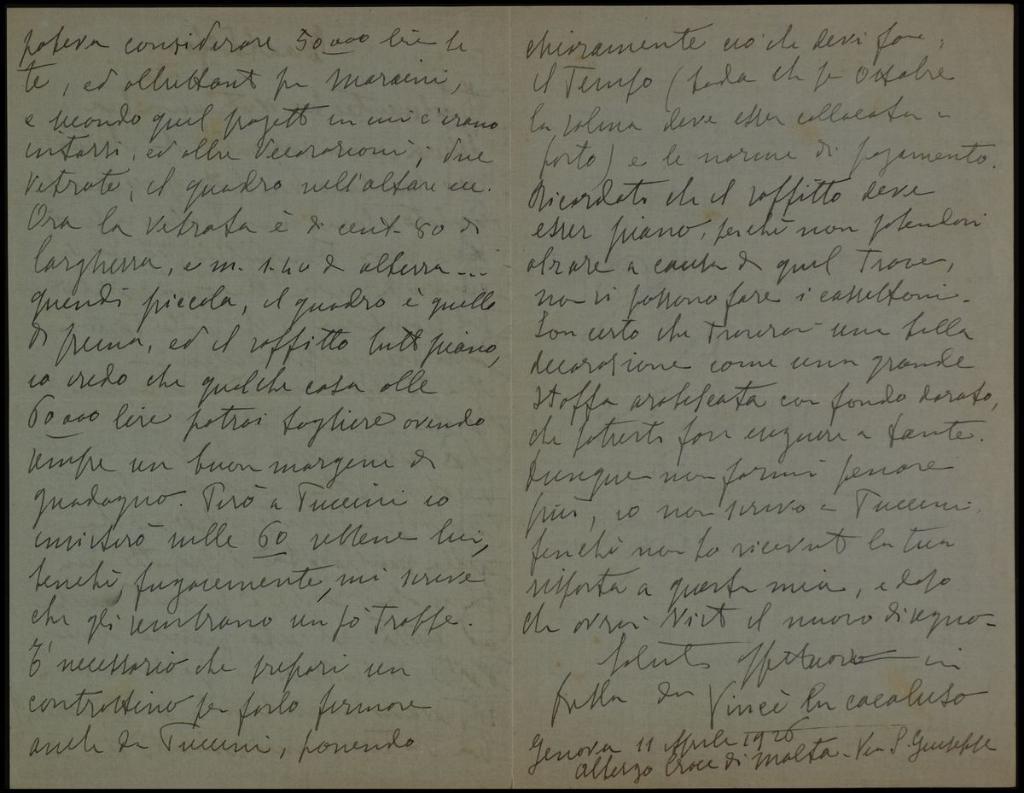 poteva considerare 50000 lire le
te, ed altrettante per Maraini,
e secondo quel progetto in cui c'erano
intarsi, ed altre decorazioni, due
vetrate, il quadro nell'altare ecc.
Ora la vetrata è di cent. 80 di
larghezza, e m. 1.40 di altezza...
quindi piccola, il quadro è quello
di prima, ed il soffitto tutto piano,
io credo che qualche cosa alle
60000 lire potrai togliere avendo
sempre un buon margine di
guadagno. Però a Puccini io
insisterò sulle 60 sebbene lui,
benchè, fugacemente, mi scrive
che gli sembrano un pò troppe.
E' necessario che prepari un
controttino per farlo firmare
anche da Puccini, ponendo
chiaramente ciò che devi fare,
il Tempo (bada che per Ottobre
la salma deve esser collocata a
posto) e le norme di pagamento.
Ricordati che il soffitto deve
esser piano, perchè non potendosi
alzare a causa di quel Trave,
non si possono fare i cassettoni.
Son certo che troverai una bella
decorazione come una grande
stoffa arabescata con fondo dorato,
che potresti fare eseguire a
Dunque non farmi penare
più, io non scrivo a Puccini,
finchè non ho ricevuto la tua
risposta a questa mia, e dopo
che avrai visto il nuovo disegno.
Saluti affettuosi in
fretta da Vincè
Genova 11 Aprile 1926
Albergo Croce di Malta - Via S. Giuseppe